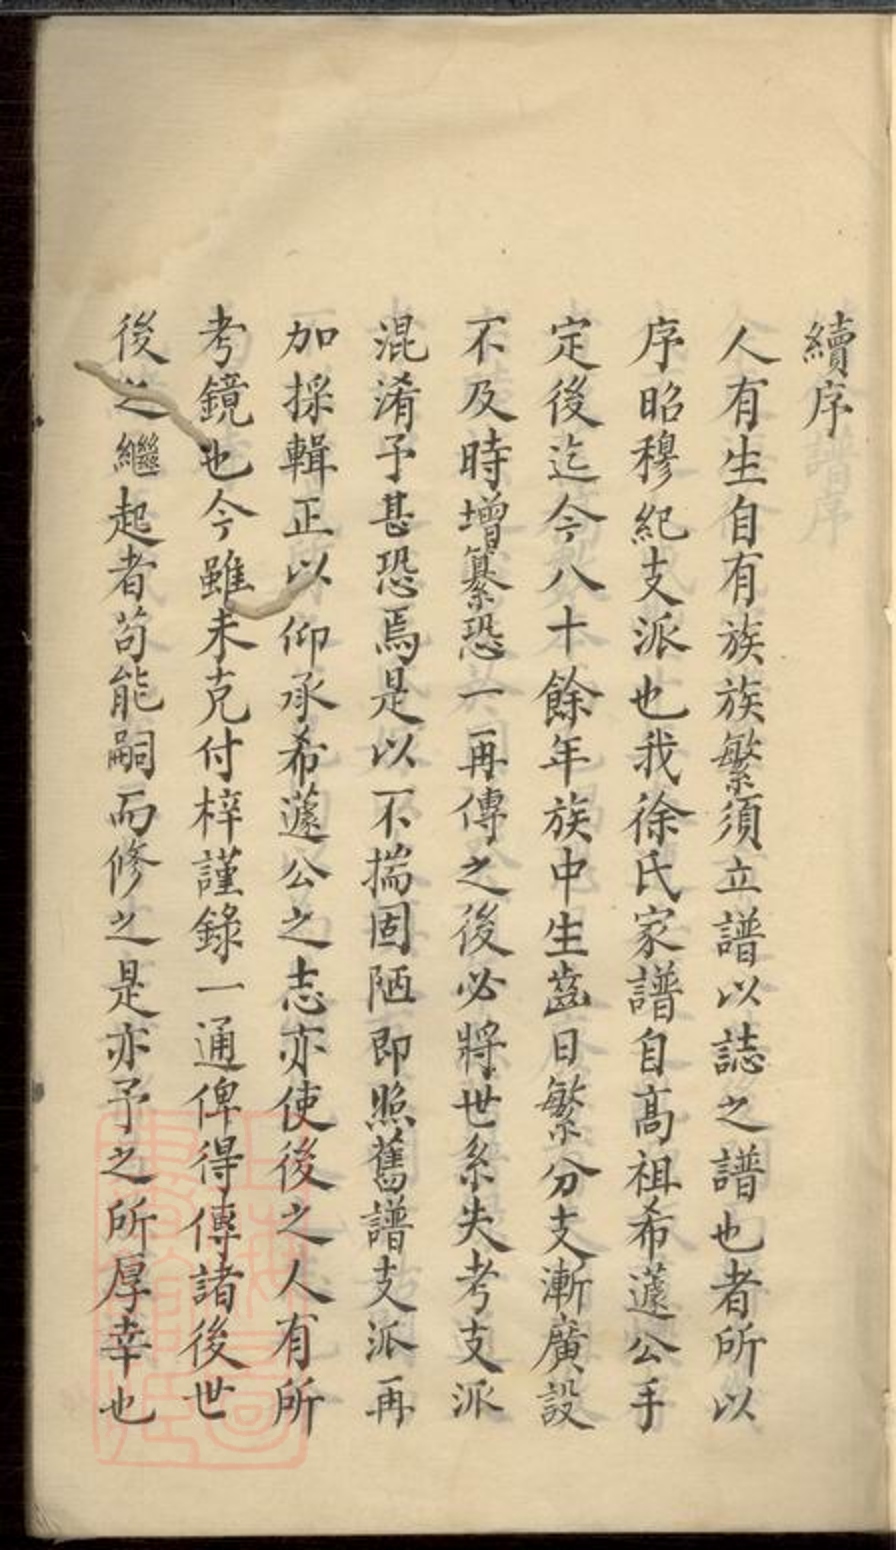 續序
人有生自有族族繁須立譜以誌之譜也者所以
序昭穆紀支派也我徐氏家譜自高祖希蘧公手
定後迄今八十餘年族中生齒日繁分支漸廣設
不及時增纂恐一再傳之後必將世系失考支派
混淆予甚恐焉是以不揣固陋即照舊譜支派再
加採輯正以仰承希蘧公之志亦使後之人有所
考鏡也今雖未克付梓謹錄一通俾得傳諸後世
後之繼起者苟能嗣而修之是亦予之所厚幸也